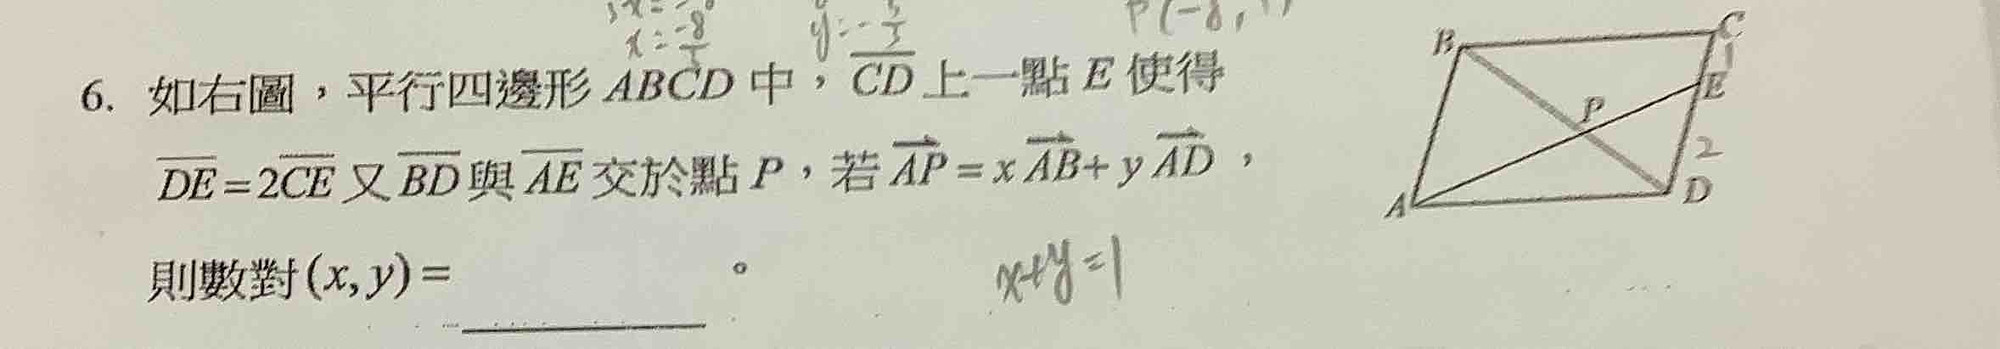 x=-8/5
y=-
P(-8,
6. 如右圖，平行四邊形 ABCD 中，CD 上一點 E 使得
DE=2CE 又 BD 與 AE 交於點 P，若 AP=x AB+y AD，
則數對(x,y)=
。
x+y=1
B
C
1
E
P
2
D
A